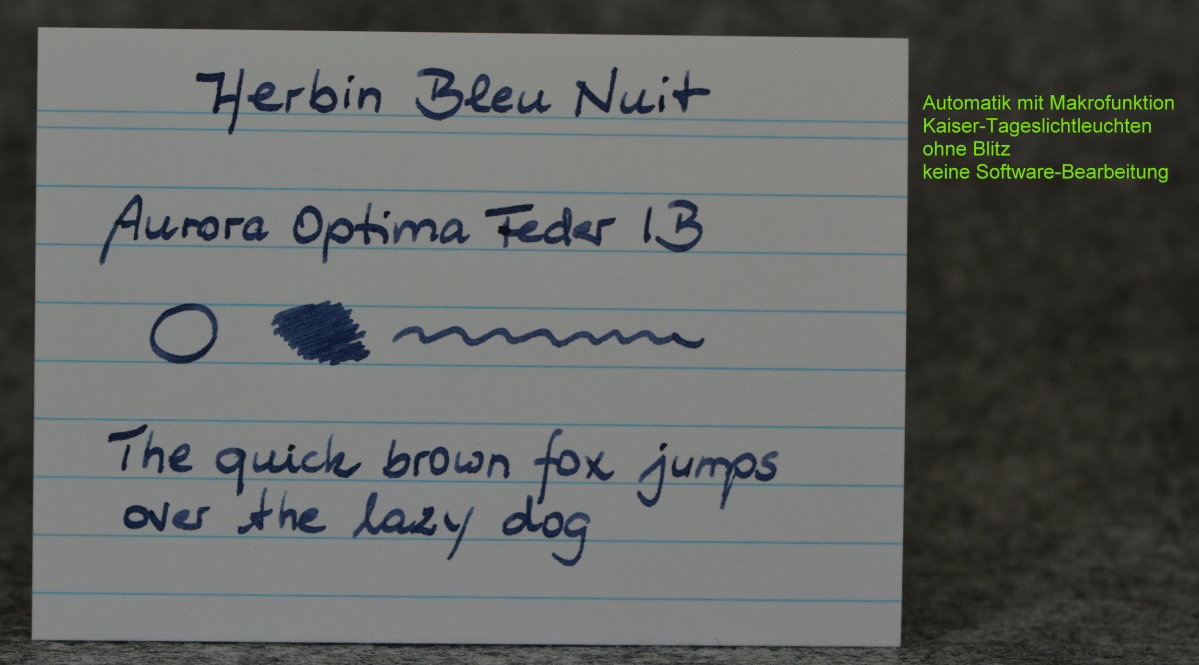 Herbin Bleu Nuit
Aurora Optima Feder IB
The quick brown fox jumps
over the lazy dog
Automatik mit Makrofunktion
Kaiser-Tageslichtleuchten
ohne Blitz
keine Software-Bearbeitung